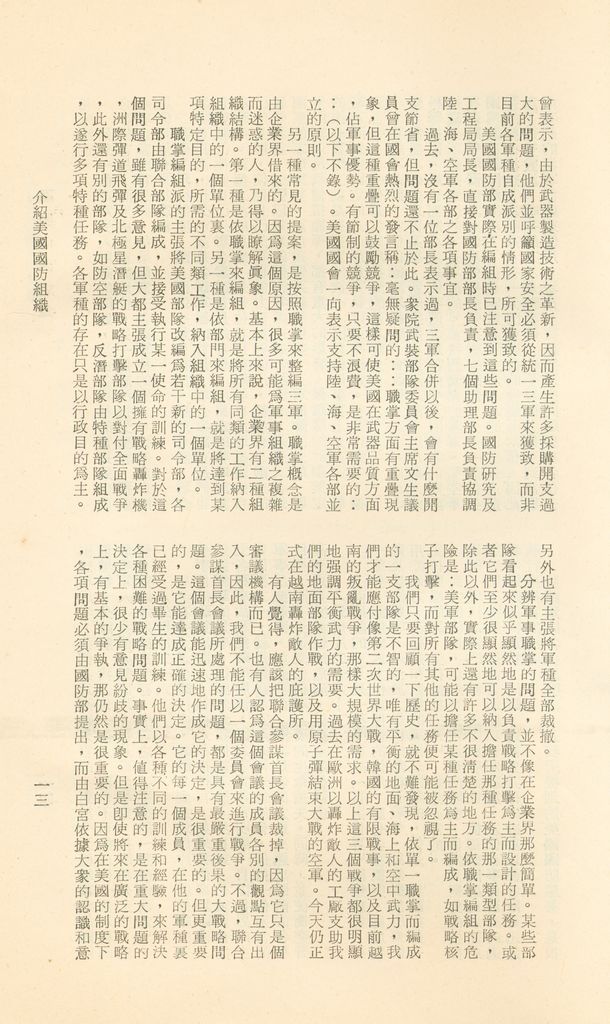 曾表示，由於武器製造技術之革新，因而產生許多採購開支過
大的問題，他們並呼籲國家安全必須從統一三軍來獲致，而非
目前各軍種自成派別的情形，所可獲致的。
美國國防部實際在編組時已注意到這些問題。國防研究及
工程局局長，直接對國防部部長負責，七個助理部長負責協調
陸、海、空軍各部之各項事宜。
過去，沒有一位部長表示過，三軍合併以後，會有什麼開
支節省，但問題還不止於此。衆院武裝部隊委員會主席文生議
員曾在國會熱烈的發言稱：毫無疑問的：：職掌方面有重疊現
象，但這種重疊可以鼓勵競爭，這樣可使美國在武器品質方面
，佔軍事優勢。有節制的競爭，只要不浪費，是非常需要的：
：（以下不錄）。美國國會一向表示支持陸、海、空軍各部並
立的原則。
另一種常見的提案，是按照職掌來整編三軍。職掌概念是
由企業界借來的。因爲這個原因，很多可能爲軍事組織之複雜
而迷惑的人，乃得以瞭解眞象。基本上來說，企業界有二種組
織結構。第一種是依職掌來編組，就是將所有同類的工作納入
組織中的一個單位裏。另一種是依部門來編組，就是將達到某
項特定目的，所需的不同類工作，納入組織中的一個單位。
職掌編組派的主張將美國部隊改編爲若干新的司令部，各
司令部由聯合部隊編成，並接受執行某一使命的訓練。對於這
個問題，雖有很多意見，但大都主張成立一個擁有戰略轟炸機
，洲際彈道飛彈及北極星潛艇的戰略打擊部隊以對付全面戰爭
，此外還有別的部隊，如防空部隊，反潛部隊由特種部隊組成
，以遂行多項特種任務。各軍種的存在只是以行政目的爲主。
另外也有主張將軍種全部裁撤。
分辨軍事職掌的問題，並不像在企業界那麼簡單。某些部
隊看起來似乎顯然地是以負責戰略打擊爲主而設計的任務。或
者它們至少很顯然地可以納入擔任那種任務的那一類型部隊，
除此以外，實際上還有許多不很清楚的地方。依職掌編組的危
險是：美軍部隊，可能以擔任某種任務爲主而編成，如戰略核
子打擊，而對所有其他的任務便可能被忽視了。
我們只要回顧一下歷史，就不難發現，依單一職掌而編成
的一支部隊是不智的，唯有平衡的地面、海上和空中武力，我
們才能應付像第二次世界大戰，韓國的有限戰事，以及目前越
南的叛亂戰爭，那樣大規模的需求。以上這三個戰爭都很明顯
地强調平衡武力的需要。過去在歐洲以轟炸敵人的工廠支助我
們的地面部隊作戰，以及用原子彈結束大戰的空軍。今天仍正
式在越南轟炸敵人的庇護所。
有人覺得，應該把聯合參謀首長會議裁掉，因爲它只是個
審議機構而已。也有人認爲這個會議的成員各別的觀點互有出
入，因此，我們不能任以一個委員會來進行戰爭。不過，聯合
參謀首長會議所處理的問題，都是具有最嚴重後果的大戰略問
題。這個會議能迅速地作成它的決定，是很重要的。但更重要
的，是它能達成正確的決定。它的每一個成員，在他的軍種裏
已經受過畢生的訓練。他們以各種不同的訓練和經驗，來解決
各種困難的戰略問題。事實上，値得注意的，是在重大問題的
決定上，很少有意見紛歧的現象。但是卽使將來在廣泛的戰略
上，有基本的爭執，那仍然是很重要的。因爲在美國的制度下
，各項問題必須由國防部提出，而由白宮依據大衆的認識和意
介紹美國國防組織
一三